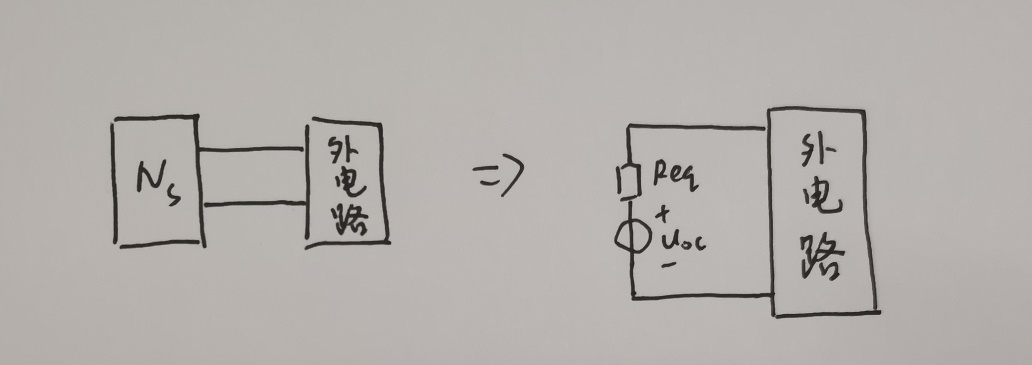 Ns
外
电
路
⇒
Req
+
uoc
-
外
电
路